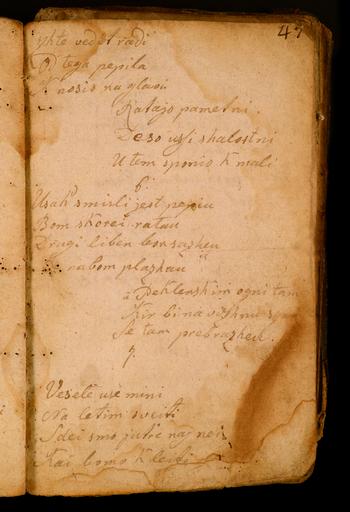 47
yhte vedet radi
tega pepila
nosis na glavi
Ratajo pametni.
De so usi shalostni
U tem spomio k mali
6.
Usak smisli jest pepiu
Bom skorei ratau
Dragi liben
nabom plazhau
Peklenskim ogni tam
Kir bi na
Se tam prebrazheu.
7.
Vesele use mini
Na letim sveiti
Sdei smo jutre naj nei
Kai bomo k